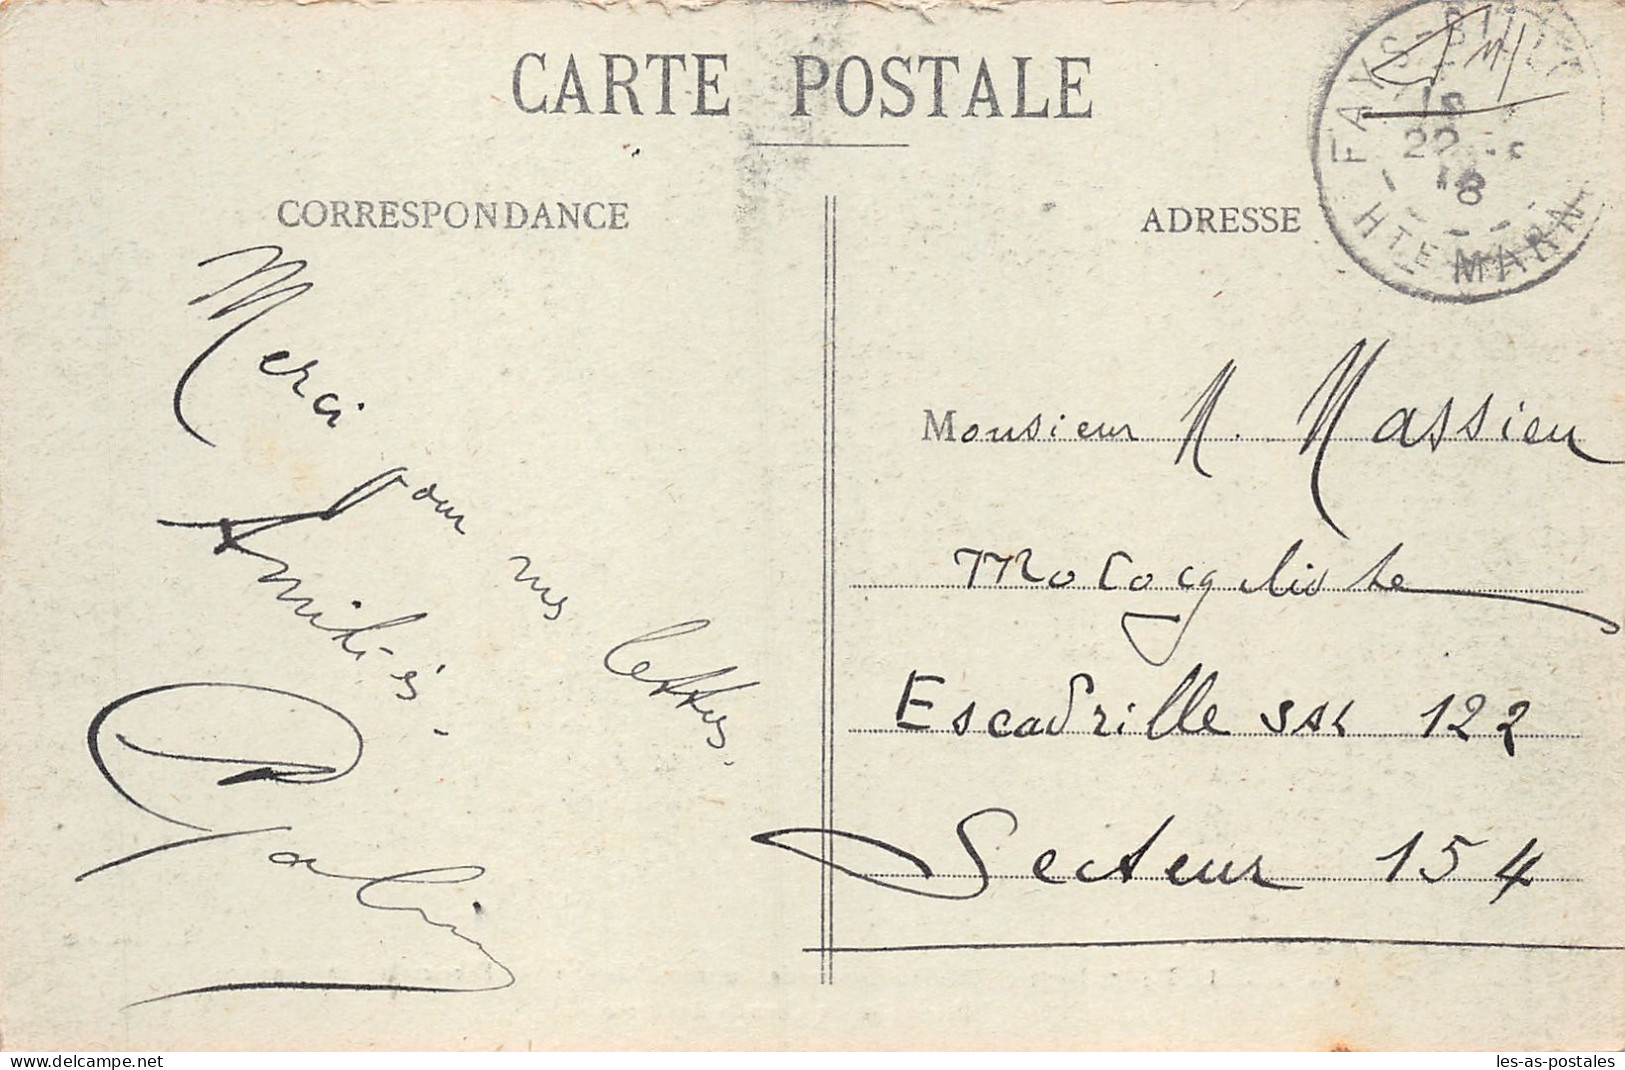 CARTE POSTALE
CORRESPONDANCE
ADRESSE
Merci pour vos lettres.
Amitiés.
Monsieur M. Massieu
Motocycliste
Escadrille SAL 122
Secteur 154
F.M
22
18
HTE MARNE
www.delcampe.net
les-as-postales